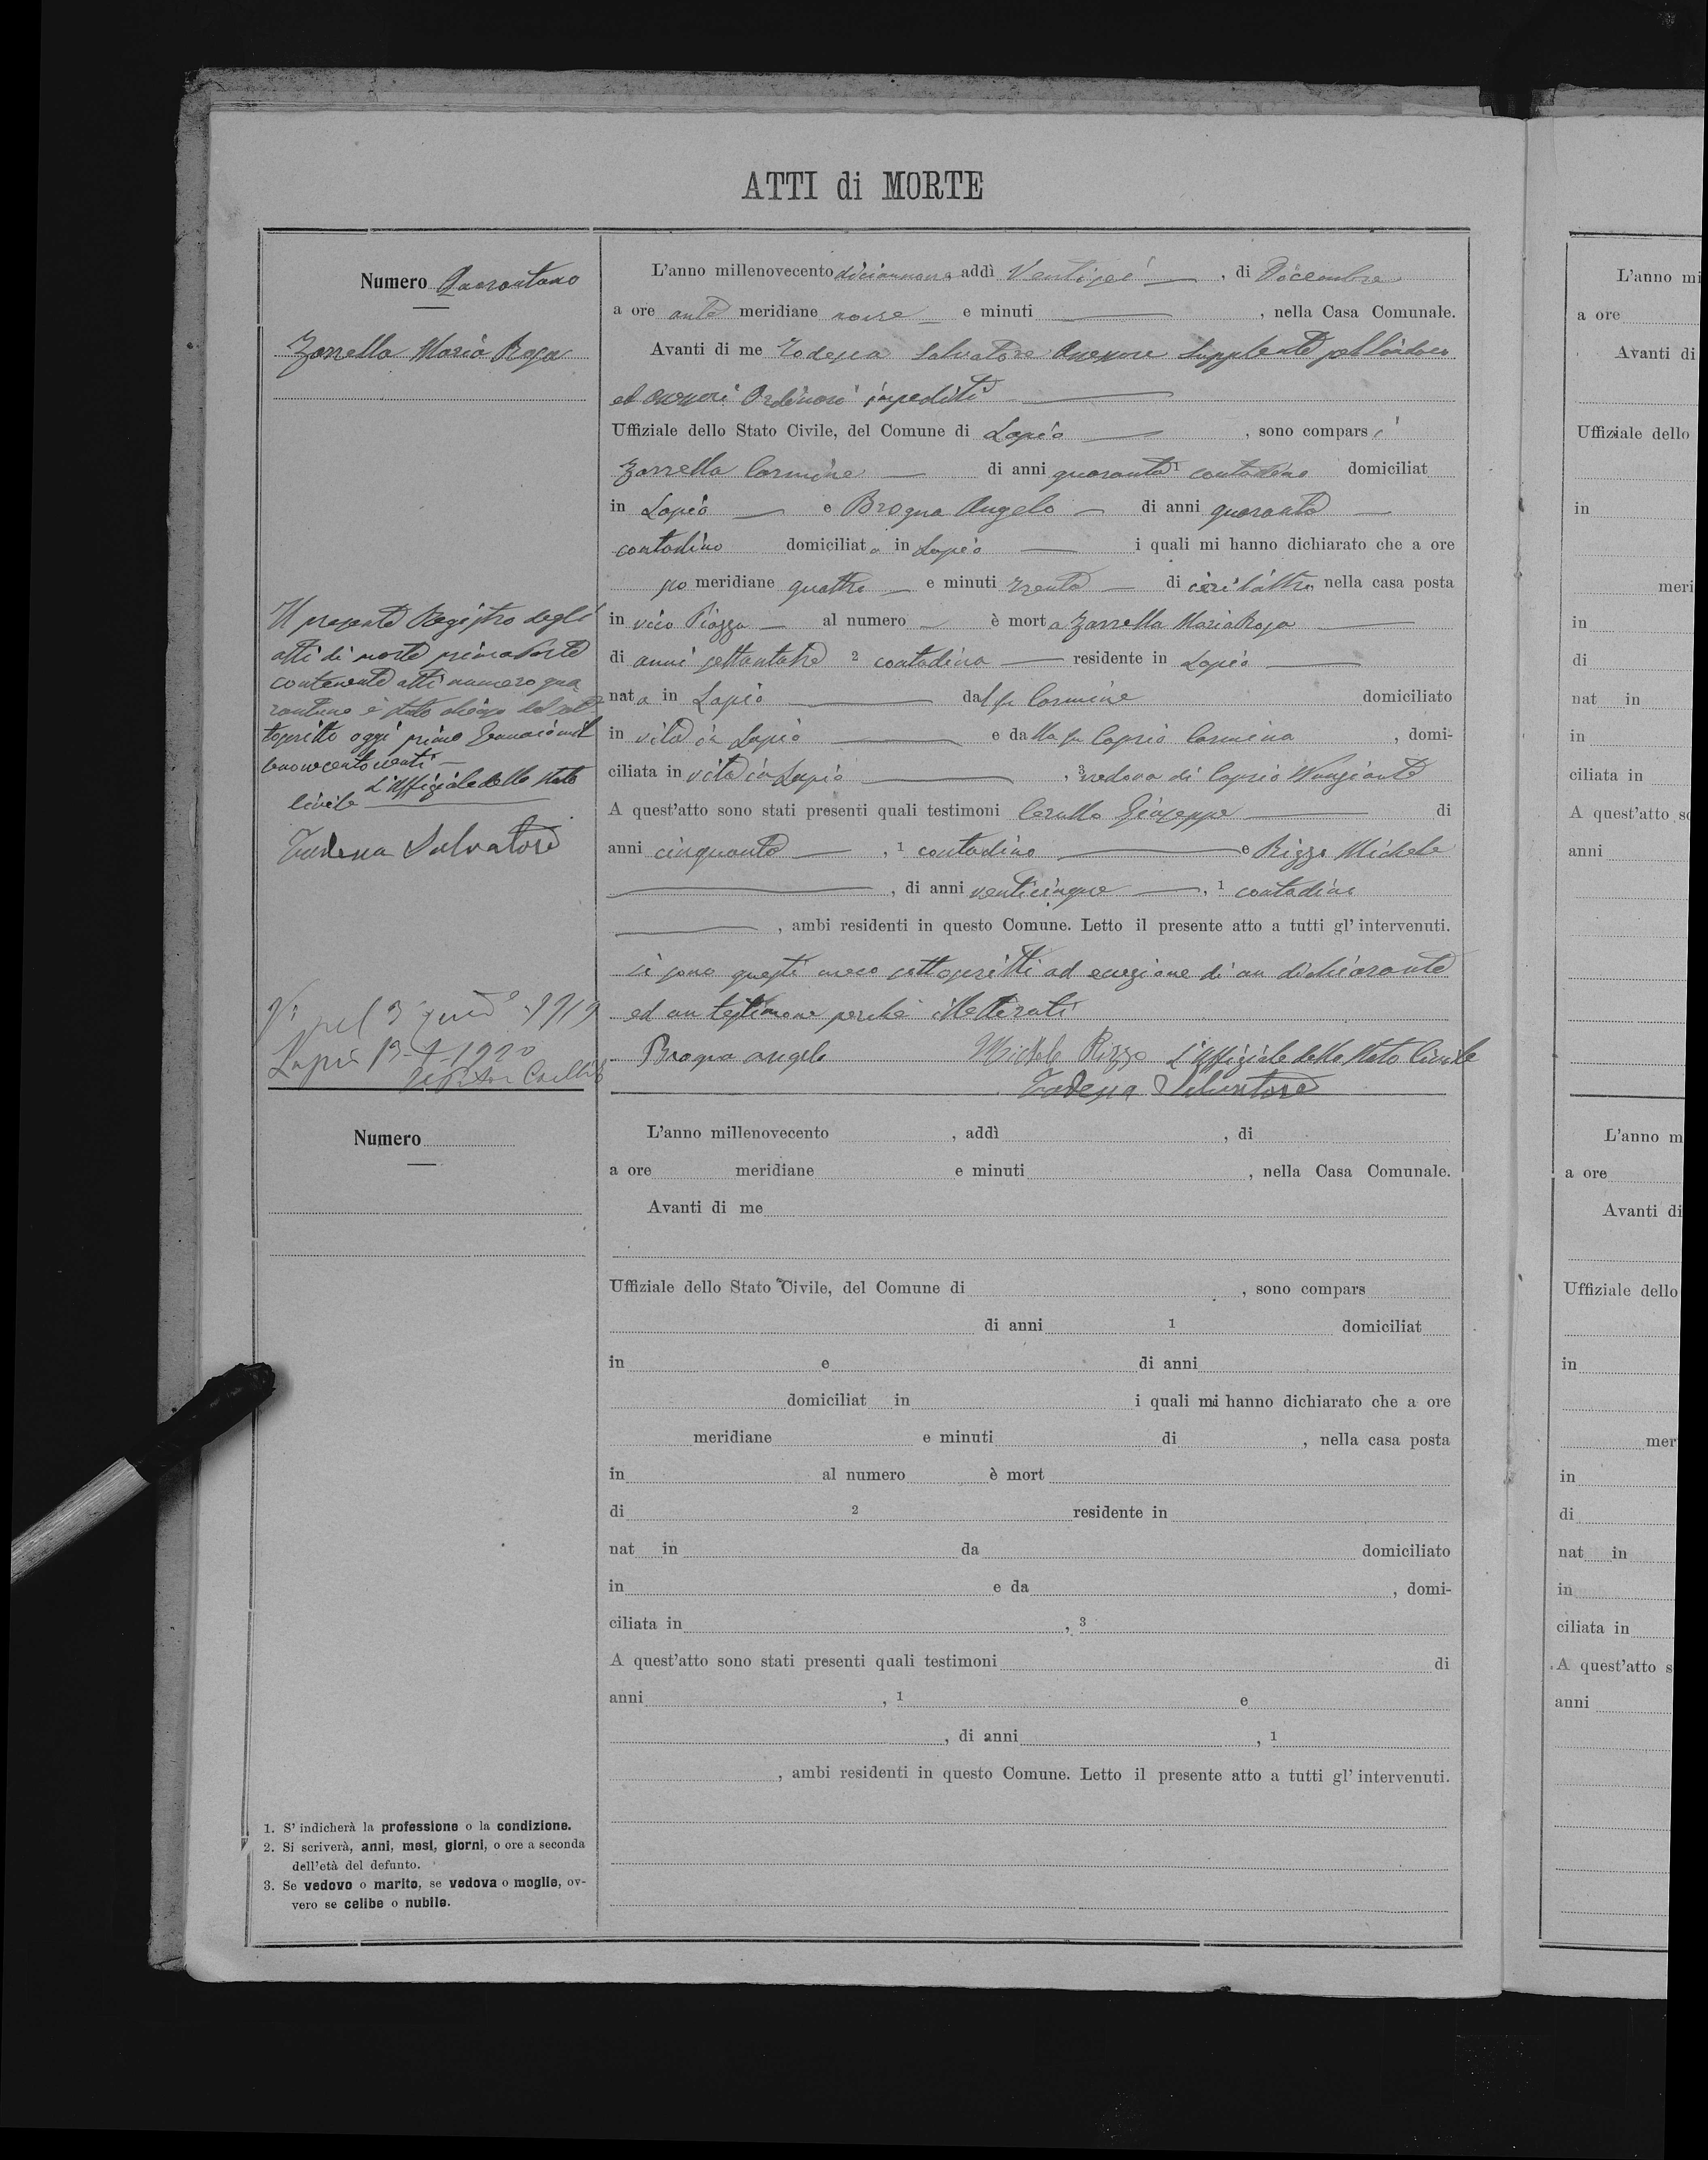 ATTI di MORTE
Numero Quarantuno
Zarrella Maria Rosa
L'anno millenovecento diciannove addì Ventisei, di Dicembre
a ore ante meridiane nove e minuti, nella Casa Comunale.
Avanti di me Todesca Salvatore Assessore Supplente pel Sindaco
ed assessori Ordinari impediti
Uffiziale dello Stato Civile, del Comune di Lapio, sono compars i
Zarrella Carmine di anni quaranta 1 contadino domiciliat
in Lapio e Brogna Angelo di anni quaranta
contadino domiciliat o in Lapio i quali mi hanno dichiarato che a ore
po meridiane quattro e minuti trenta di ieri l'altro nella casa posta
in vico Piazza al numero è mort a Zarrella Maria Rosa
di anni settantatre 2 contadina residente in Lapio
nat a in Lapio dal fu Carmine domiciliato
in vita in Lapio e da lla fu Caprio Carmina, domi-
ciliata in vita in Lapio, 3 vedova di Caprio Nunziante
A quest'atto sono stati presenti quali testimoni Cerullo Giuseppe di
anni cinquanta, 1 contadino e Rizzo Michele
, di anni venticinque, 1 contadino
, ambi residenti in questo Comune. Letto il presente atto a tutti gl' intervenuti.
si sono questi meco sottoscritti ad eccezione di un dichiarante
ed un testimone perché illetterati
Brogna angelo Michele Rizzo L'Uffiziale dello Stato Civile
Todesca Salvatore
Il presente Registro degli
atti di morte prima Parte
contenente atti numero qua
rantuno è stato chiuso dal sot
toscritto oggi primo Gennaio mil
lenovecento venti
L'Uffiziale dello Stato
Civile
Todesca Salvatore
Lapio 13-1-1920
Numero
L'anno millenovecento, addì, di
a ore meridiane e minuti, nella Casa Comunale.
Avanti di me
Uffiziale dello Stato Civile, del Comune di, sono compars
di anni 1 domiciliat
in e di anni
domiciliat in i quali mi hanno dichiarato che a ore
meridiane e minuti di, nella casa posta
in al numero è mort
di 2 residente in
nat in da domiciliato
in e da, domi-
ciliata in, 3
A quest'atto sono stati presenti quali testimoni di
anni, 1 e
, di anni, 1
, ambi residenti in questo Comune. Letto il presente atto a tutti gl' intervenuti.
1. S' indicherà la professione o la condizione.
2. Si scriverà, anni, mesi, giorni, o ore a seconda
dell'età del defunto.
3. Se vedovo o marito, se vedova o moglie, ov-
vero se celibe o nubile.
L'anno mi
a ore
Avanti di
Uffiziale dello
in
meri
in
di
nat in
in
ciliata in
A quest'atto so
anni
L'anno m
a ore
Avanti di
Uffiziale dello
in
mer
in
di
nat in
in
ciliata in
A quest'atto s
anni